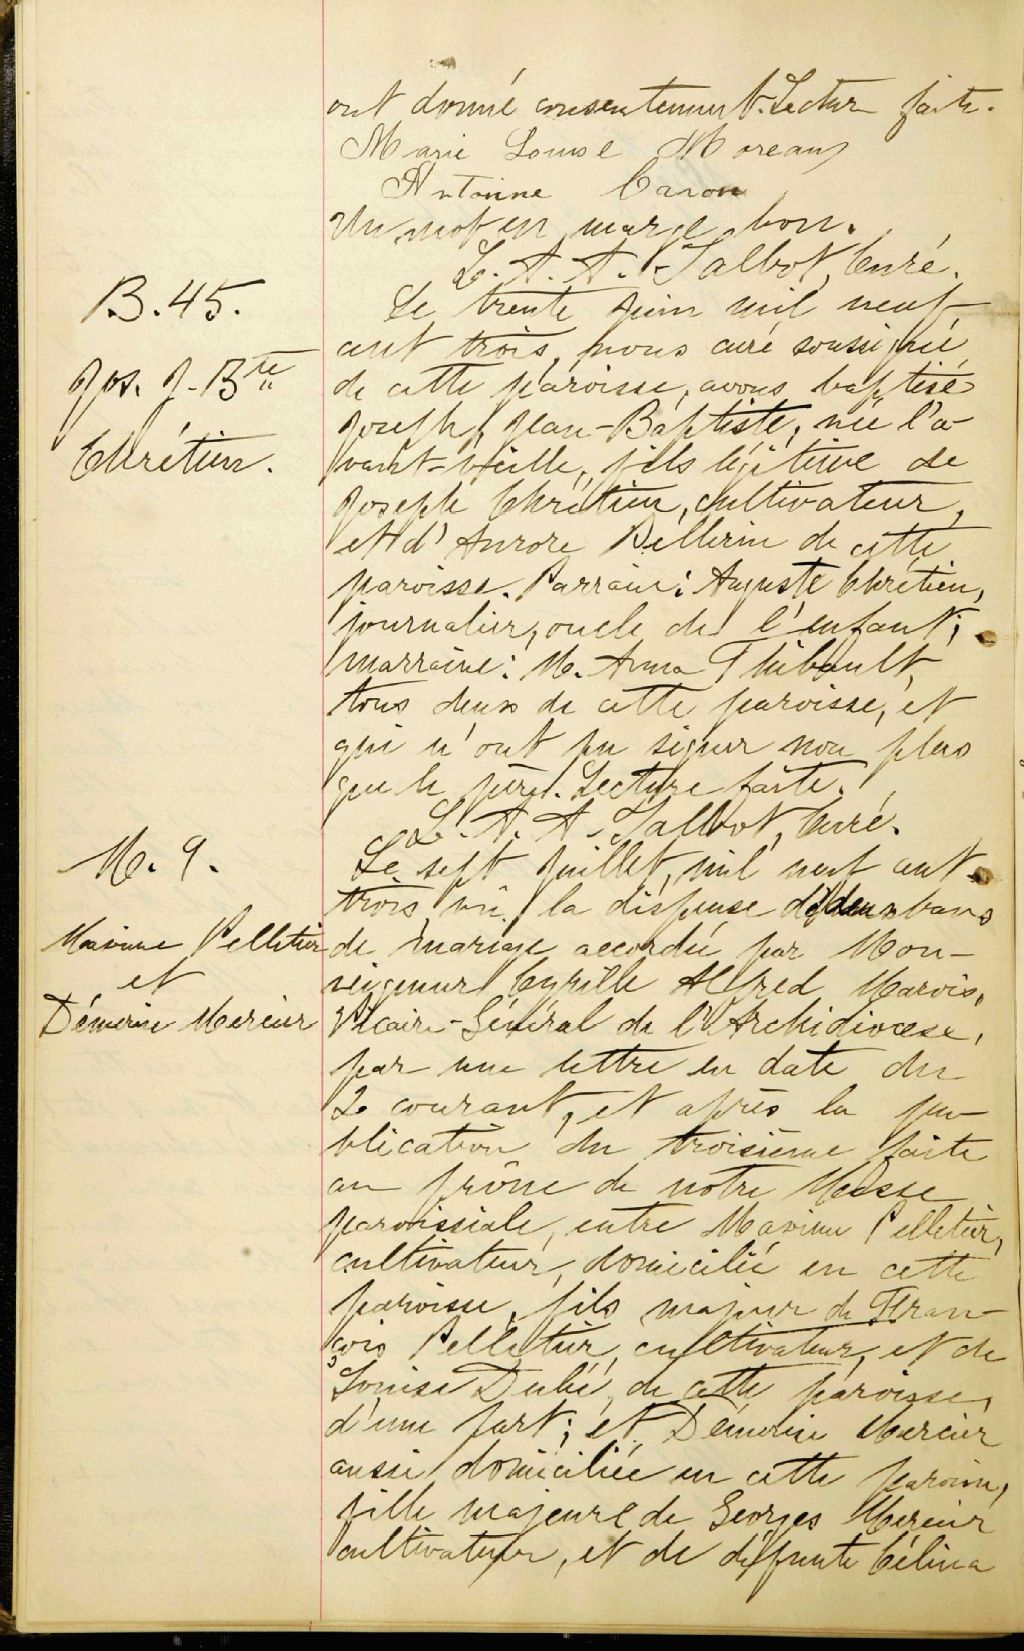 ont donné consentement. Lecture faite.
Marie Louise Moreau
Antoine Caron
Un mot en marge bon.
L. A. A. Talbot, Curé.
B. 45.
Jos. J.-Bte
Chrétien.
Le trente juin mil neuf
cent trois, nous curé soussigné
de cette paroisse, avons baptisé
Joseph, Jean-Baptiste, née l'a-
vant-veille, fils légitime de
Joseph Chrétien, cultivateur,
et d'Aurore Pellerin de cette
paroisse. Parrain: Auguste Chrétien,
journalier, oncle de l'enfant;
marraine: M. Anna Thibault,
tous deux de cette paroisse, et
qui n'ont pu signer non plus
que le père. Lecture faite.
L. A. A. Talbot, Curé.
M. 9.
Maxime Pelletier
et
Démerise Mercier
Le sept Juillet, mil neuf cent
trois, vu la dispense de deux bans
de mariage accordée par Mon-
seigneur Cyrille Alfred Marois,
Vicaire-Général de l'Archidiocèse,
par une lettre en date du
2 courant, et après la pu-
blication du troisième faite
au prône de notre Messe
paroissiale, entre Maxime Pelletier,
cultivateur, domicilié en cette
paroisse, fils majeur de Fran-
çois Pelletier, cultivateur, et de
Louise Dubé, de cette paroisse,
d'une part; et Démerise Mercier
aussi domiciliée en cette paroisse,
fille majeure de Georges Mercier
cultivateur, et de défunte Célina